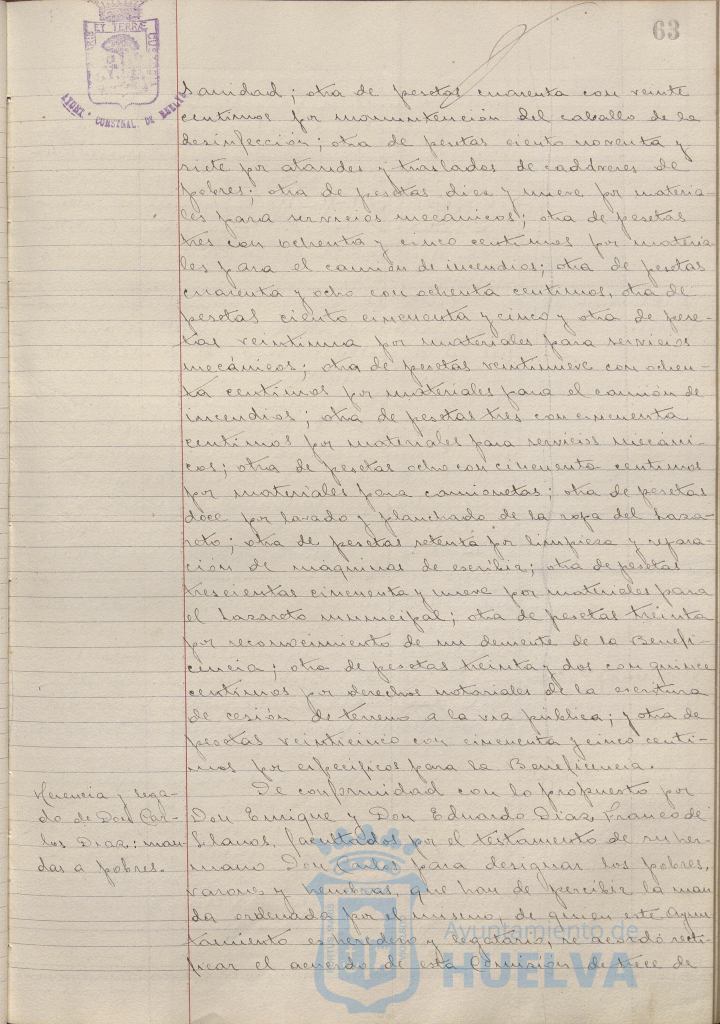 63
ET TERRÆ
AYUNT. CONSTNAL. DE HUELVA
Sanidad; otra de pesetas cuarenta con veinte
centimos por manuntención del caballo de la
desinfección; otra de pesetas ciento noventa y
siete por ataudes y traslados de cadáveres de
pobres; otra de pesetas diez y nueve por materia-
les para servicios mecánicos; otra de pesetas
tres con ochenta y cinco centimos por materia-
les para el camión de incendios; otra de pesetas
cuarenta y ocho con ochenta centimos, otra de
pesetas ciento cincuenta y cinco y otra de pese-
tas veintiuna por materiales para servicios
mecánicos; otra de pesetas veintinueve con ochen-
ta centimos por materiales para el camión de
incendios; otra de pesetas tres con cincuenta
centimos por materiales para servicios mecáni-
cos; otra de pesetas ocho con cincuenta centimos
por materiales para camionetas; otra de pesetas
doce por lavado y planchado de la ropa del Laza-
reto; otra de pesetas setenta por limpieza y repara-
ción de máquinas de escribir; otra de pesetas
trescientas cincuenta y nueve por materiales para
el Lazareto municipal; otra de pesetas treinta
por reconocimiento de un demente de la Benefi-
cencia; otra de pesetas treinta y dos con quince
centimos por derechos notariales de la escritura
de cesión de terreno a la via pública; y otra de
pesetas veinticinco con cincuenta y cinco centi-
mos por específicos para la Beneficencia.
Herencia y lega-
do de Don Car-
los Diaz: man-
das a pobres.
De conformidad con lo propuesto por
Don Enrique y Don Eduardo Diaz Franco de
Llanos, facultados por el testamento de su her-
mano Don Carlos para designar los pobres,
varones y hembras, que han de percibir la man-
da ordenada por el mismo, de quien este Ayun-
tamiento es heredero y legatario, se acordó recti-
ficar el acuerdo de esta Comisión de trece de
Ayuntamiento de
HUELVA